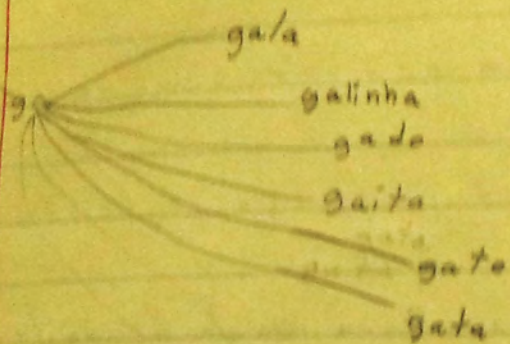 gala
g
galinha
gado
gaita
gato
gata